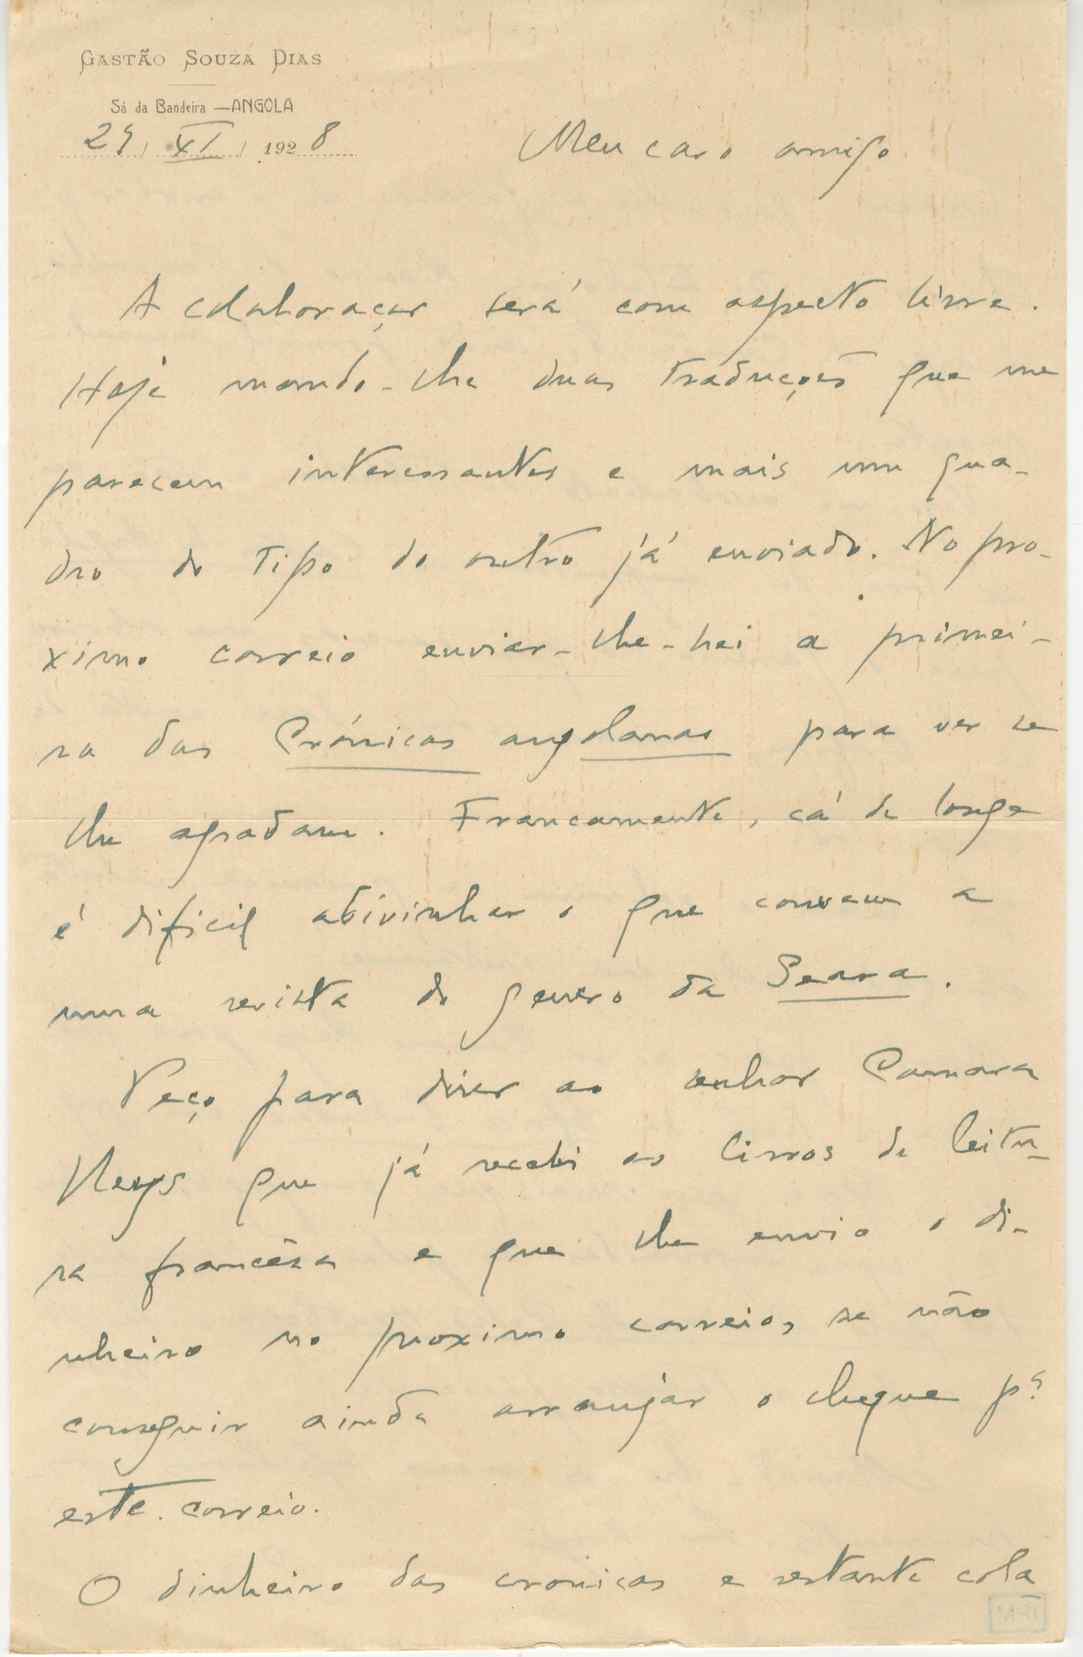 GASTÃO SOUZA DIAS
Sá da Bandeira — ANGOLA
29 / XI / 1928
Meu caro amigo
A colaboração será com aspecto livre.
Hoje mando-lhe duas traduções que me
parecem interessantes e mais um qua-
dro do tipo do outro já enviado. No pro-
ximo correio enviar-lhe-hei a primei-
ra das Crónicas angolanas para ver se
lhe agradam. Francamente, cá de longe
é dificil adivinhar o que convem a
uma revista do genero da Seara.
Peço para dizer ao senhor Camara
Reys que já recebi os livros de leitu-
ra francêsa e que lhe envio o di-
nheiro no proximo correio, se não
conseguir ainda arranjar o cheque pª
este correio.
O dinheiro das cronicas e restante cola